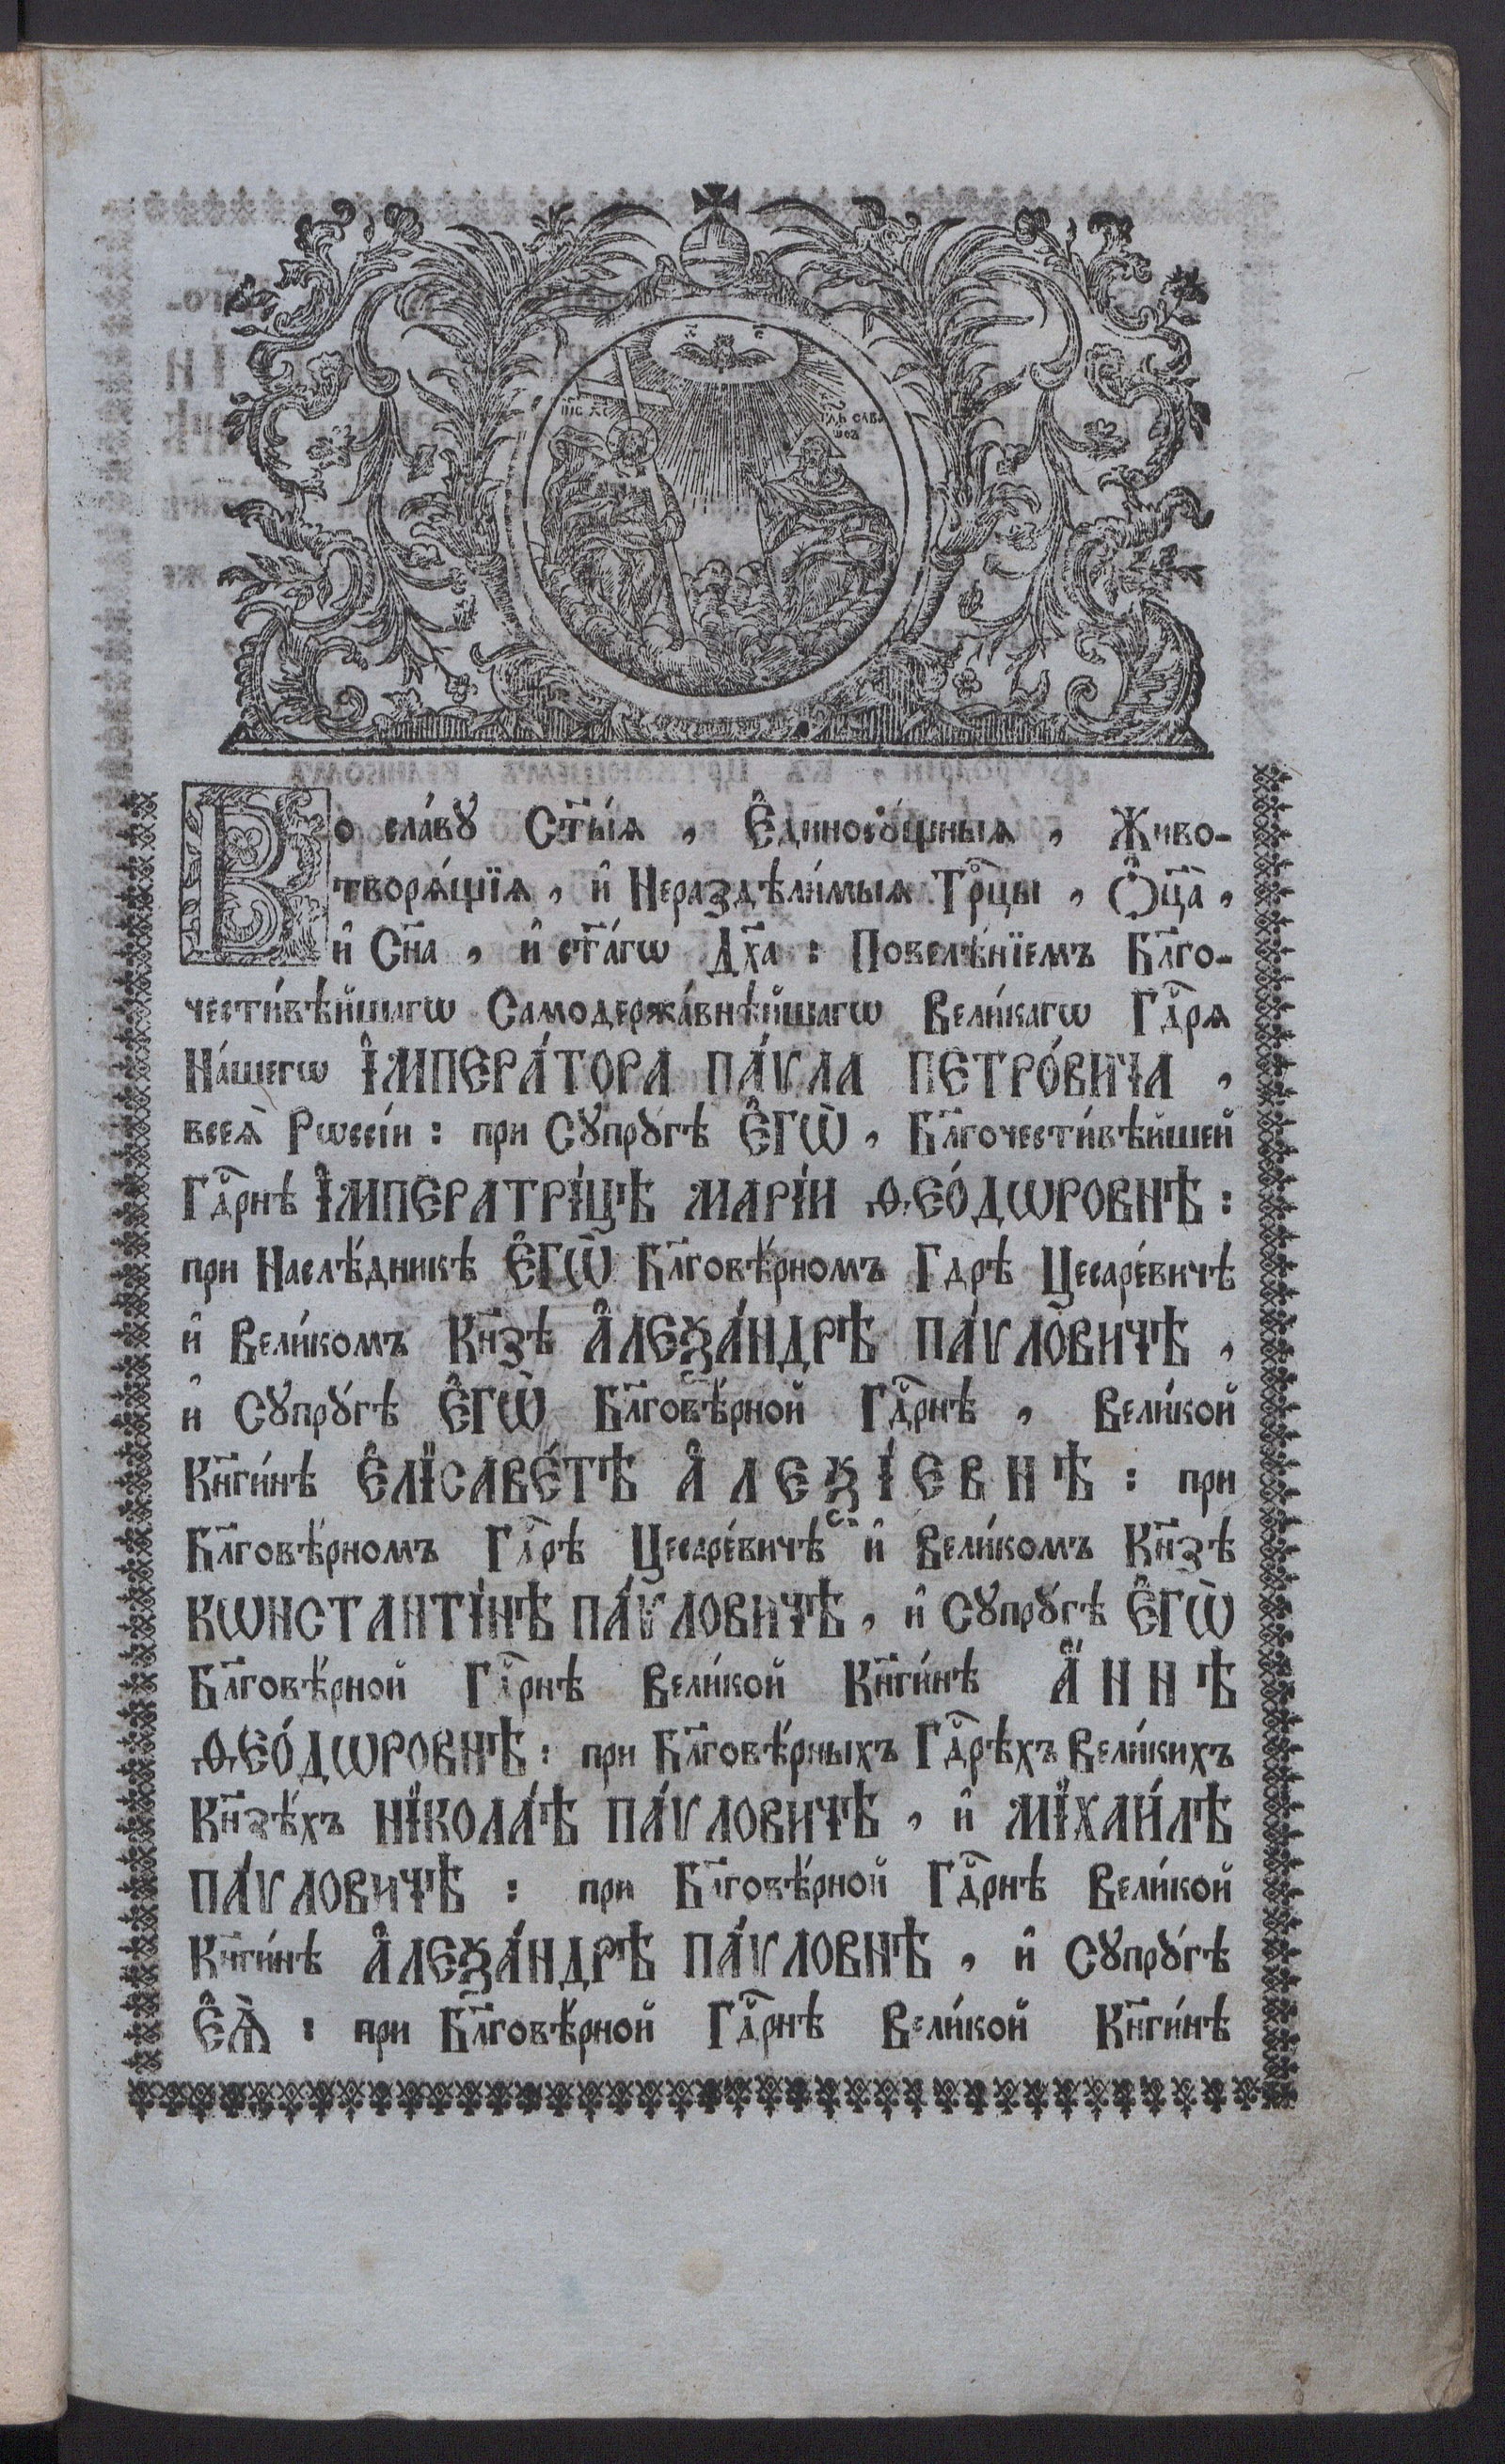 І҆ИС ХС
Д С
ГДЬ САВА
ѠѲЪ
Во сла́вꙋ Ст҃ы́ѧ , Є҆диносꙋ́щныѧ , Живо-
творѧ́щїѧ , и҆ Нераздѣли́мыѧ Трⷪ҇цы , Ѻ҆ц҃а̀ ,
и҆ Сн҃а , и҆ ст҃а́гѡ Дх҃а : Повелѣ́нїемъ Бл҃го-
чести́вѣйшагѡ Самодержа́внѣйшагѡ Вели́кагѡ Гдⷭ҇рѧ
На́шегѡ І҆МПЕРА́ТОРА ПА́ѴЛА ПЕТРО́ВИЧА ,
всеѧ̀ Рѡссі́и : при Сꙋпрꙋгѣ Є҆ГѠ̀ , Бл҃гочести́вѣйшей
Гдⷭ҇рнѣ І҆МПЕРАТРІ́ЦѢ МАРІ́И ѲЕО́ДѠРОВНѢ :
при Наслѣ́дникѣ Є҆ГѠ̀ Бл҃говѣ́рномъ Гдⷭ҇рѣ Цесаре́вичѣ
и҆ Вели́комъ Кн҃зѣ А҆ЛЕѮА́НДРѢ ПА́ѴЛОВИЧѢ ,
и҆ Сꙋпрꙋ́гѣ Є҆ГѠ̀ Бл҃говѣ́рной Гдⷭ҇рнѣ , Вели́кой
Кн҃ги́нѣ Є҆ЛІСАВЕ́ТѢ А҆ЛЕѮІ́ЕВНѢ : при
Бл҃говѣ́рномъ Гдⷭ҇рѣ Цесаре́вичѣ и҆ Вели́комъ Кн҃зѣ
КѠНСТАНТІ́НѢ ПА́ѴЛОВИЧѢ , и҆ Сꙋпрꙋ́гѣ Є҆ГѠ̀
Бл҃говѣ́рной Гдⷭ҇рнѣ Вели́кой Кн҃ги́нѣ А҆́ННѢ
ѲЕО́ДѠРОВНѢ : при Бл҃говѣ́рныхъ Гдⷭ҇рѣхъ Вели́кихъ
Кн҃зѣ́хъ НІКОЛА́Ѣ ПА́ѴЛОВИЧѢ , и҆ МІХАИ́ЛѢ
ПА́ѴЛОВИЧѢ : при Бл҃говѣ́рной Гдⷭ҇рнѣ Вели́кой
Кн҃ги́нѣ А҆ЛЕѮА́НДРѢ ПА́ѴЛОВНѢ , и҆ Сꙋпрꙋ́гѣ
Є҆Ѧ̀ : при Бл҃говѣ́рной Гдⷭ҇рнѣ Вели́кой Кн҃ги́нѣ